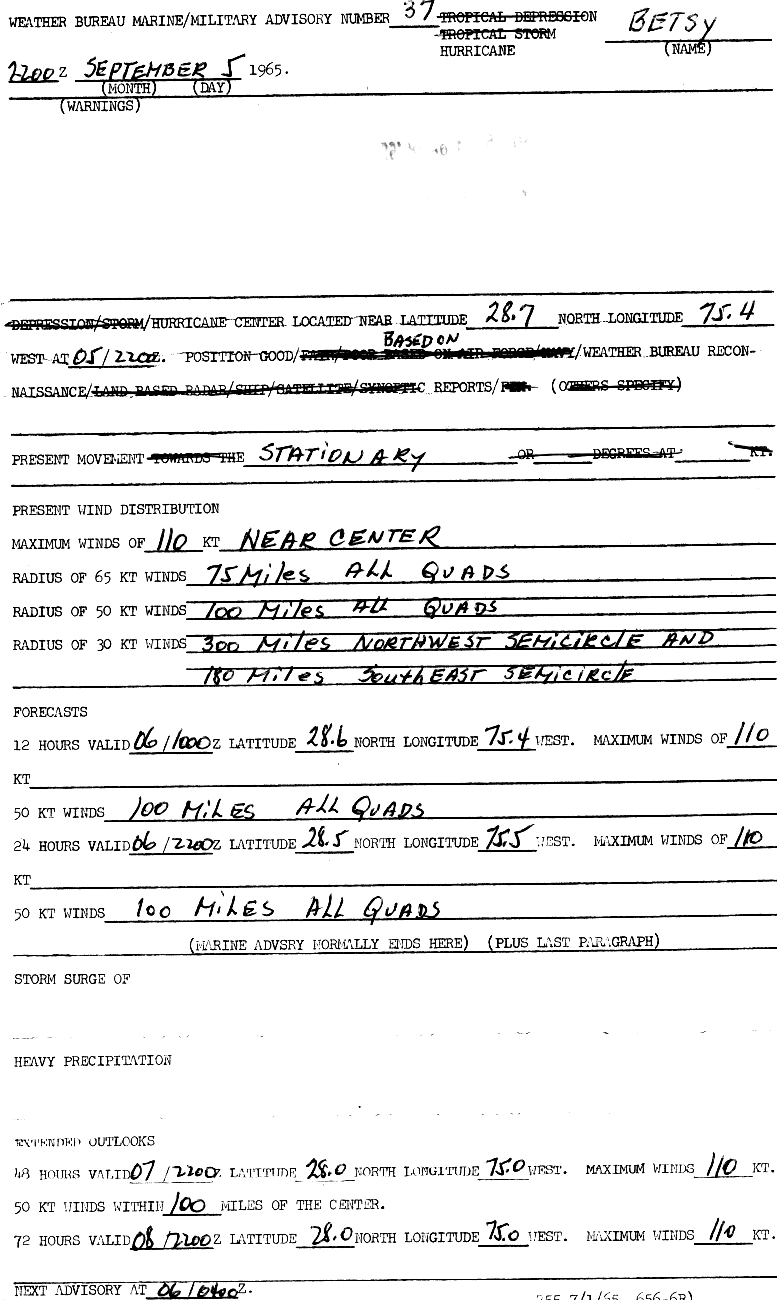 WEATHER BUREAU MARINE/MILITARY ADVISORY NUMBER 37 TROPICAL DEPRESSION BETSY
TROPICAL STORM
HURRICANE (NAME)
2200Z SEPTEMBER 5 1965.
(MONTH) (DAY)
(WARNINGS)
DEPRESSION/STORM/HURRICANE CENTER LOCATED NEAR LATITUDE 28.7 NORTH LONGITUDE 75.4
BASED ON
WEST AT 05/2200Z. POSITION GOOD/FAIR/POOR BASED ON AIR FORCE/NAVY/WEATHER BUREAU RECON-
NAISSANCE/LAND BASED RADAR/SHIP/SATELLITE/SYNOPTIC REPORTS/ (OTHERS SPECIFY)
PRESENT MOVEMENT TOWARDS THE STATIONARY OR DEGREES AT KT.
PRESENT WIND DISTRIBUTION
MAXIMUM WINDS OF 110 KT NEAR CENTER
RADIUS OF 65 KT WINDS 75 Miles ALL QUADS
RADIUS OF 50 KT WINDS 100 Miles All QUADS
RADIUS OF 30 KT WINDS 300 Miles NORTHWEST SEMICIRCLE AND
180 Miles SouthEAST SEMICIRCLE
FORECASTS
12 HOURS VALID 06/1000Z LATITUDE 28.6 NORTH LONGITUDE 75.4 WEST. MAXIMUM WINDS OF 110
KT
50 KT WINDS 100 MILES ALL QUADS
24 HOURS VALID 06/2200Z LATITUDE 28.5 NORTH LONGITUDE 75.5 WEST. MAXIMUM WINDS OF 110
KT
50 KT WINDS 100 MILES ALL QUADS
(MARINE ADVSRY NORMALLY ENDS HERE) (PLUS LAST PARAGRAPH)
STORM SURGE OF
HEAVY PRECIPITATION
EXTENDED OUTLOOKS
48 HOURS VALID 07/2200Z LATITUDE 28.0 NORTH LONGITUDE 75.0 WEST. MAXIMUM WINDS 110 KT.
50 KT WINDS WITHIN 100 MILES OF THE CENTER.
72 HOURS VALID 08/2200Z LATITUDE 28.0 NORTH LONGITUDE 75.0 WEST. MAXIMUM WINDS 110 KT.
NEXT ADVISORY AT 06/0400Z.